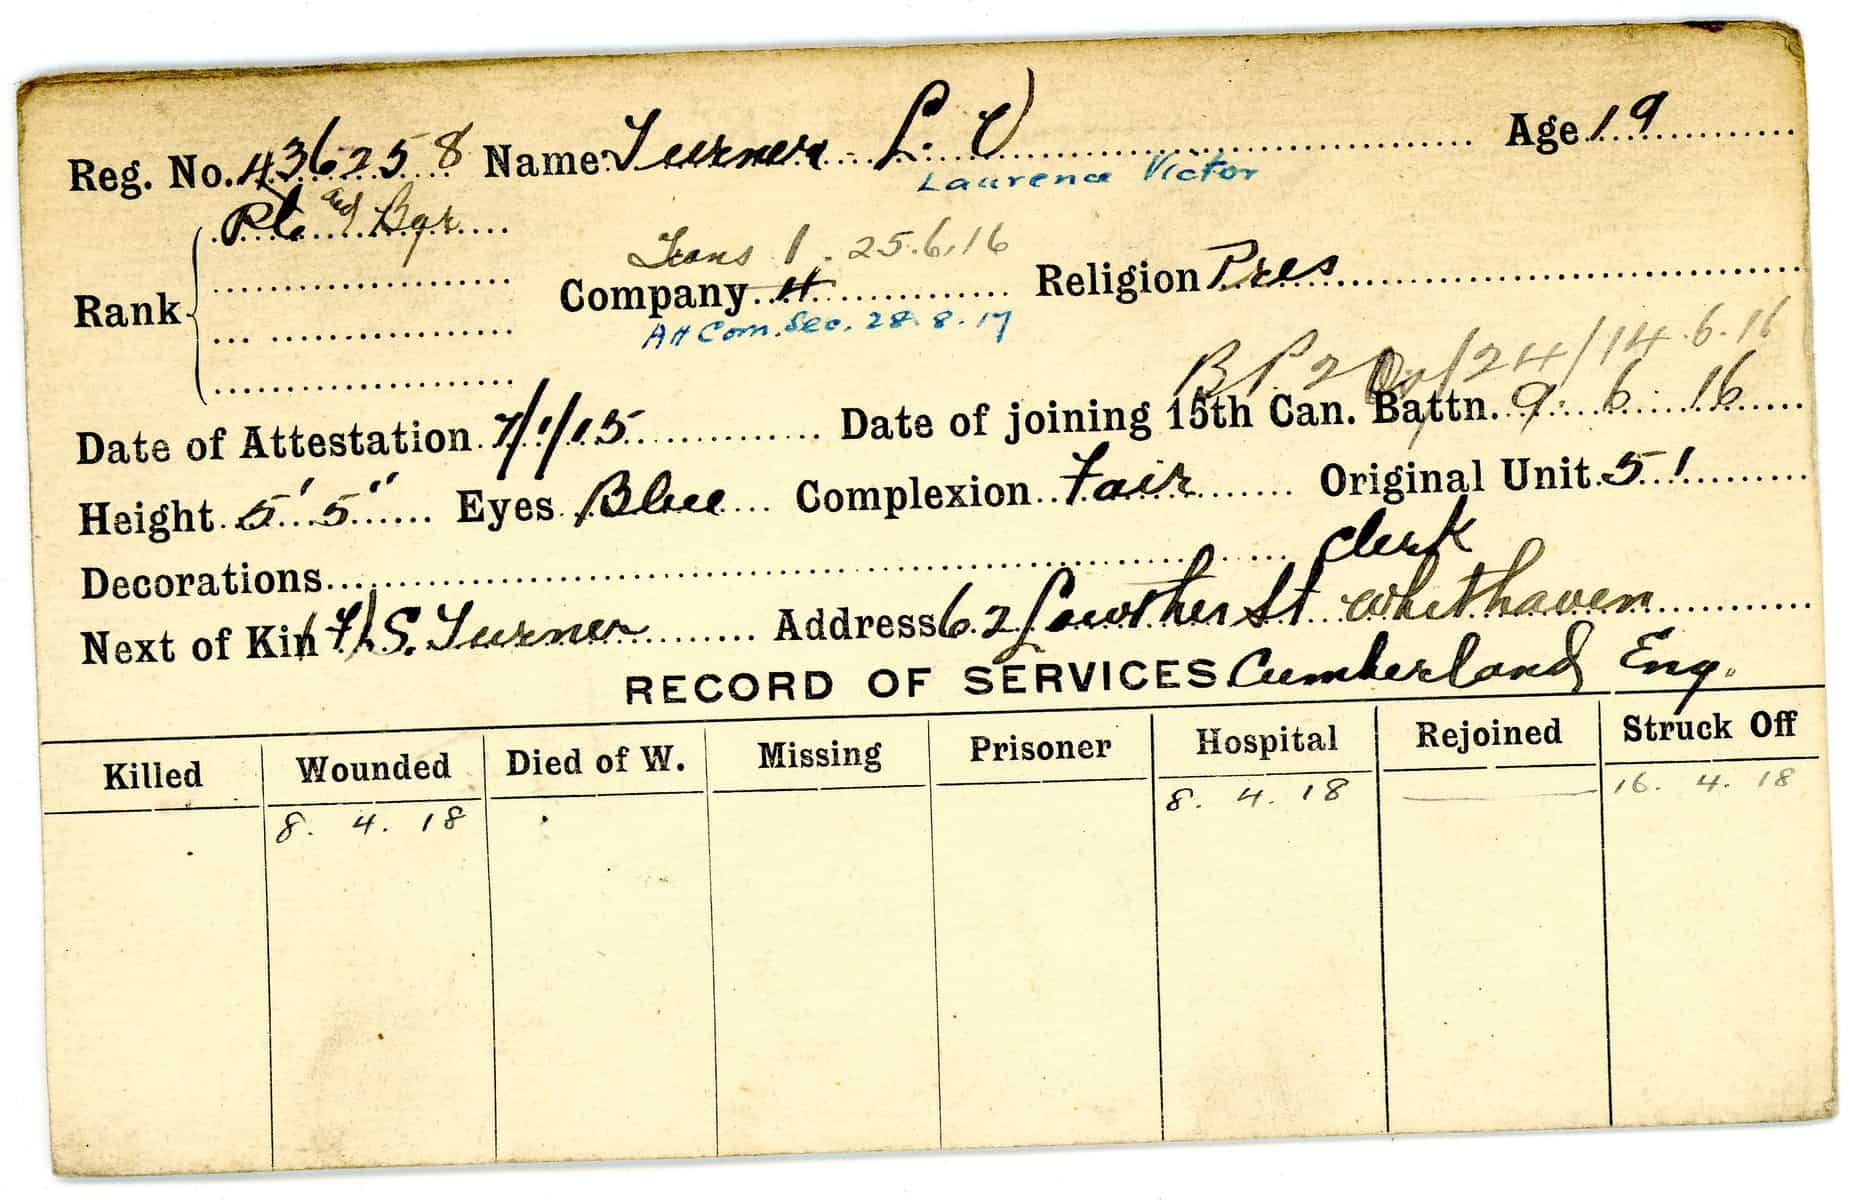 Reg. No. 436258 Name Turner L. V Age 19
Laurence Victor
Pte and Bgr
Trans 1. 25.6.16
Rank Company H Religion Pres
Att Com. Sec. 28.8.17
B P 2 /24/14.6.16
Date of Attestation 7/1/15 Date of joining 15th Can. Battn. 9. 6. 16
Height 5' 5" Eyes Blue Complexion Fair Original Unit 51
Decorations Clerk
Next of Kin S. Turner Address 62 Lowther St Whithaven
RECORD OF SERVICES Cumberland Eng.
Killed Wounded Died of W. Missing Prisoner Hospital Rejoined Struck Off
8. 4. 18 8. 4. 18 16. 4. 18